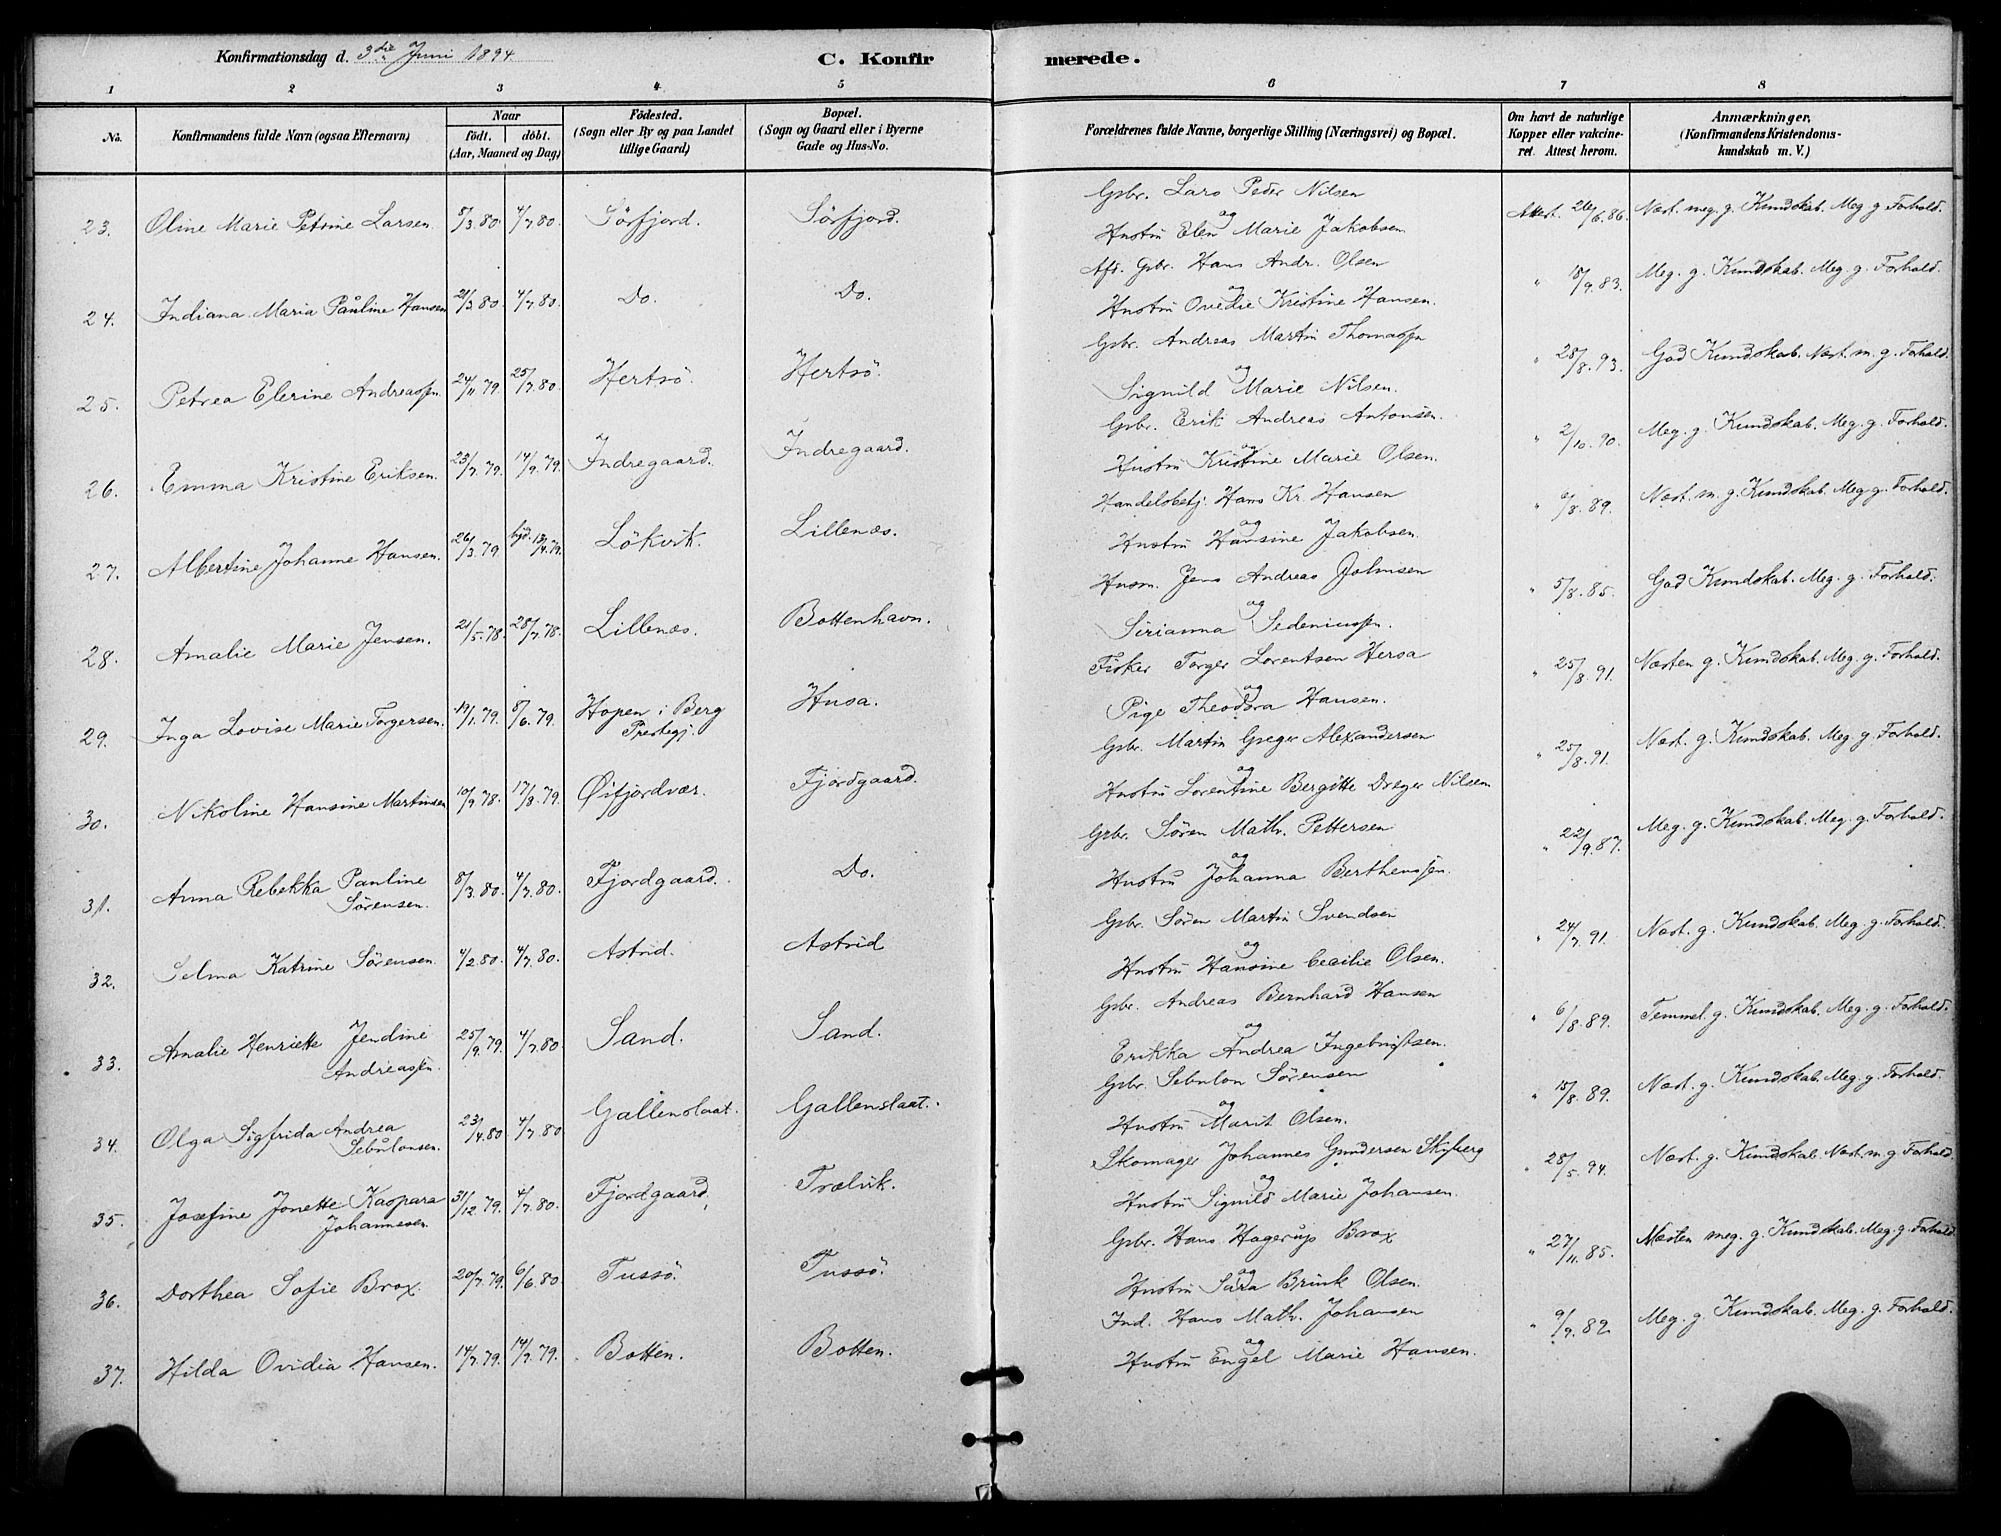 Konfirmationsdag d. 3die Juni 1894
C. Konfirmerede.
1 2 3 4 5 6 7 8
No. Konfirmandens fulde Navn (ogsaa Efternavn) Naar födt. döbt. (Aar, Maaned og Dag) Födested. (Sogn eller By og paa Landet tillige Gaard) Bopæl. (Sogn og Gaard eller i Byerne Gade og Hus-No. Forældrenes fulde Navne, borgerlige Stilling (Næringsvei) og Bopæl. Om havt de naturlige Kopper eller vakcineret. Attest herom. Anmærkninger, (Konfirmandens Kristendomskundskab m. V.)
23. Oline Marie Petrine Larsen. 8/3 80. 4/7 80. Sörfjord. Sörfjord. Gsbr. Lars Peder Nilsen
og
Hustru Elen Marie Jakobsen Attest. 26/6. 86. Næst. meg. g. Kundskab. Meg g Forhold.
24. Indiana Maria Pauline Hansen 21/3 80. 4/7 80. Do. Do. Afd. Gsbr. Hans Andr. Olsen
og
Hustru Ovedie Kristine Hansen. " 18/9. 83. Meg. g. Kundskab. Meg. g. Forhold.
25. Petrea Elerine Andreassen 24/11 79. 25/7 80. Hertsö. Hertsö. Gsbr. Andreas Martin Thomassen
og
Signild Marie Nilsen. " 28/8. 93. God Kundskab. Næst. m. g. Forhold.
26. Emma Kristine Eriksen. 23/7 79. 14/9 79. Indregaard. Indregaard. Gsbr. Erik Andreas Antonsen.
og
Hustru Kristine Marie Olsen. " 2/10. 90. Meg. g. Kundskab. Meg. g. Forhold.
27. Albertine Johanne Hansen. 26/3 79 hjd. 13/4 79. Lökvik. Lillenæs. Handelsbetj. Hans Kr. Hansen
og
Hustru Hansine Jakobsen. " 6/8. 89. Næst. m. g. Kundskab. Meg g. Forhold.
28. Amalie Marie Jensen. 21/5 78. 28/7 78. Lillenæs. Bottenhavn. Husm. Jens Andreas Johnsen
og
Sirianna Sedeniussen. " 5/8. 85. God Kundskab. Meg. g. Forhold.
29. Inga Lovise Marie Torgersen. 19/1 79. 8/6 79. Hopen i Berg
Prestegj. Husa. Fisker Torger Lorentsen Hersa
og
Pige Theodora Hansen. " 25/8. 91. Næsten g. Kundskab. Meg. g. Forhold.
30. Nikoline Hansine Martinsen 10/9 78. 17/8 79. Øifjordvær. Fjordgaard. Gsbr. Martin Greger Alexandersen
og
Hustru Lorentine Bergitte Dreyer Nilsen " 25/8. 91. Næst. g. Kundskab. Meg g. Forhold.
31. Anna Rebekka Pauline
Sörensen. 8/3 80. 4/7 80. Fjordgaard. Do. Gsbr. Sören Math. Pettersen
og
Hustru Johanna Berthenssen. " 22/9. 87. Meg. g. Kundskab. Meg. g. Forhold.
32. Selma Katrine Sörensen. 4/2 80. 4/7 80. Astrid. Astrid Gsbr. Sören Martin Svendsen
og
Hustru Hansine Cecilie Olsen. " 24/7 91. Næst. g. Kundskab. Meg. g. Forhold.
33. Amalie Henriette Jendine
Andreassen. 25/9 79. 4/7 80. Sand. Sand. Gsbr. Andreas Bernhard Hansen
og
Erikka Andrea Ingebrigtsen. " 6/8. 89. Temmel. g. Kundskab. Meg. g. Forhold.
34. Olga Sigfrida Andrea
Sebulonsen. 23/4 80 4/7 80 Gallenslaat. Gallenslaat. Gsbr. Sebulon Sörensen
og
Hustru Marit Olsen. " 15/8. 89. Næst. g. Kundskab. Meg. g. Forhold.
35. Josefine Jonette Kaspara
Johannesen. 31/12 79. 4/7 80. Fjordgaard, Trælvik. Skomager Johannes Gundersen Skyberg
og
Hustru Signild Marie Johansen. " 28/5. 94. Næst. g. Kundskab. Næst. m. g Forhold.
36. Dorthea Sofie Brox. 20/7 79. 6/6 80. Tussö. Tussö. Gsbr. Hans Hagerup Brox
og
Hustru Sara Brink Olsen. " 27/11. 85. Næsten meg. g. Kundskab. Meg. g. Forhold.
37. Hilda Ovidia Hansen. 14/7 79. 14/9 79. Botten. Botten. Ind. Hans Math. Johansen
og
Hustru Engel Marie Hansen. " 9/9. 82. Meg. g. Kundskab. Meg. g. Forhold.